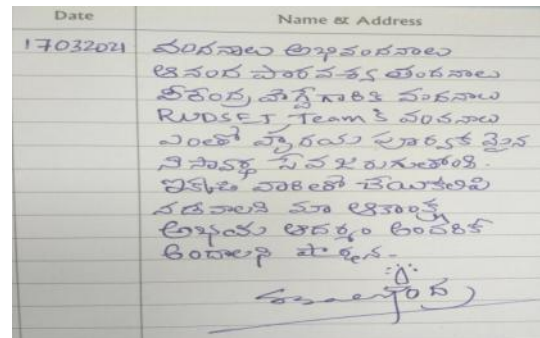 Date Name & Address
17032021 వందనాలు అభివందనాలు
ఆనంద పారవశ్య తందనాలు
వీరేంద్ర హెగ్డే గారికి వందనాలు
RUDSET Team కి వందనాలు
ఎంతో హృదయ పూర్వక మైన
నిస్వార్థ సేవ జరుగుతోంది.
ఇక్కడి వారితో చేయికలిపి
నడవాలని మా ఆకాంక్ష
అభయ ఆదర్శం అందరికీ
అందాలని ప్రార్థన.